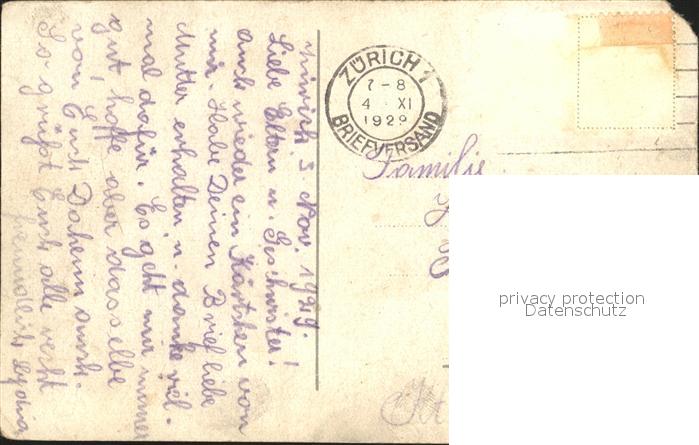 Zürich 3. Nov. 1929.
Liebe Eltern u. Geschwister!
Auch wieder ein Kärtchen von
mir. Habe Deinen Brief liebe
Mutter erhalten u. danke viel-
mal dafür. Es geht mir immer
gut, hoffe aber dasselbe
von Euch Daheim auch.
So grüßt Euch alle recht
freundlich Lydia
ZÜRICH 1
7-8
4. XI
1929
BRIEFVERSAND
Familie
privacy protection
Datenschutz